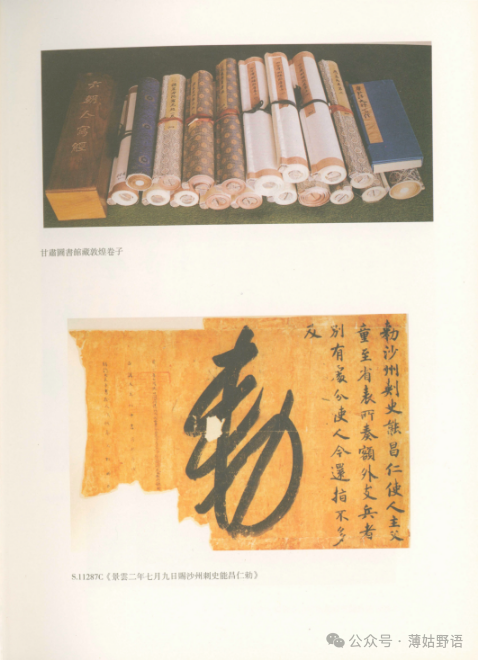 六朝人寫經
甘肅圖書館藏敦煌卷子
勅沙州刺史能昌仁使人主父
童至省表所奏額外支兵者
別有處分使人今還指不多
及
勅
S.11287C《景雲二年七月九日賜沙州刺史能昌仁勅》
公众号 · 薄姑野语